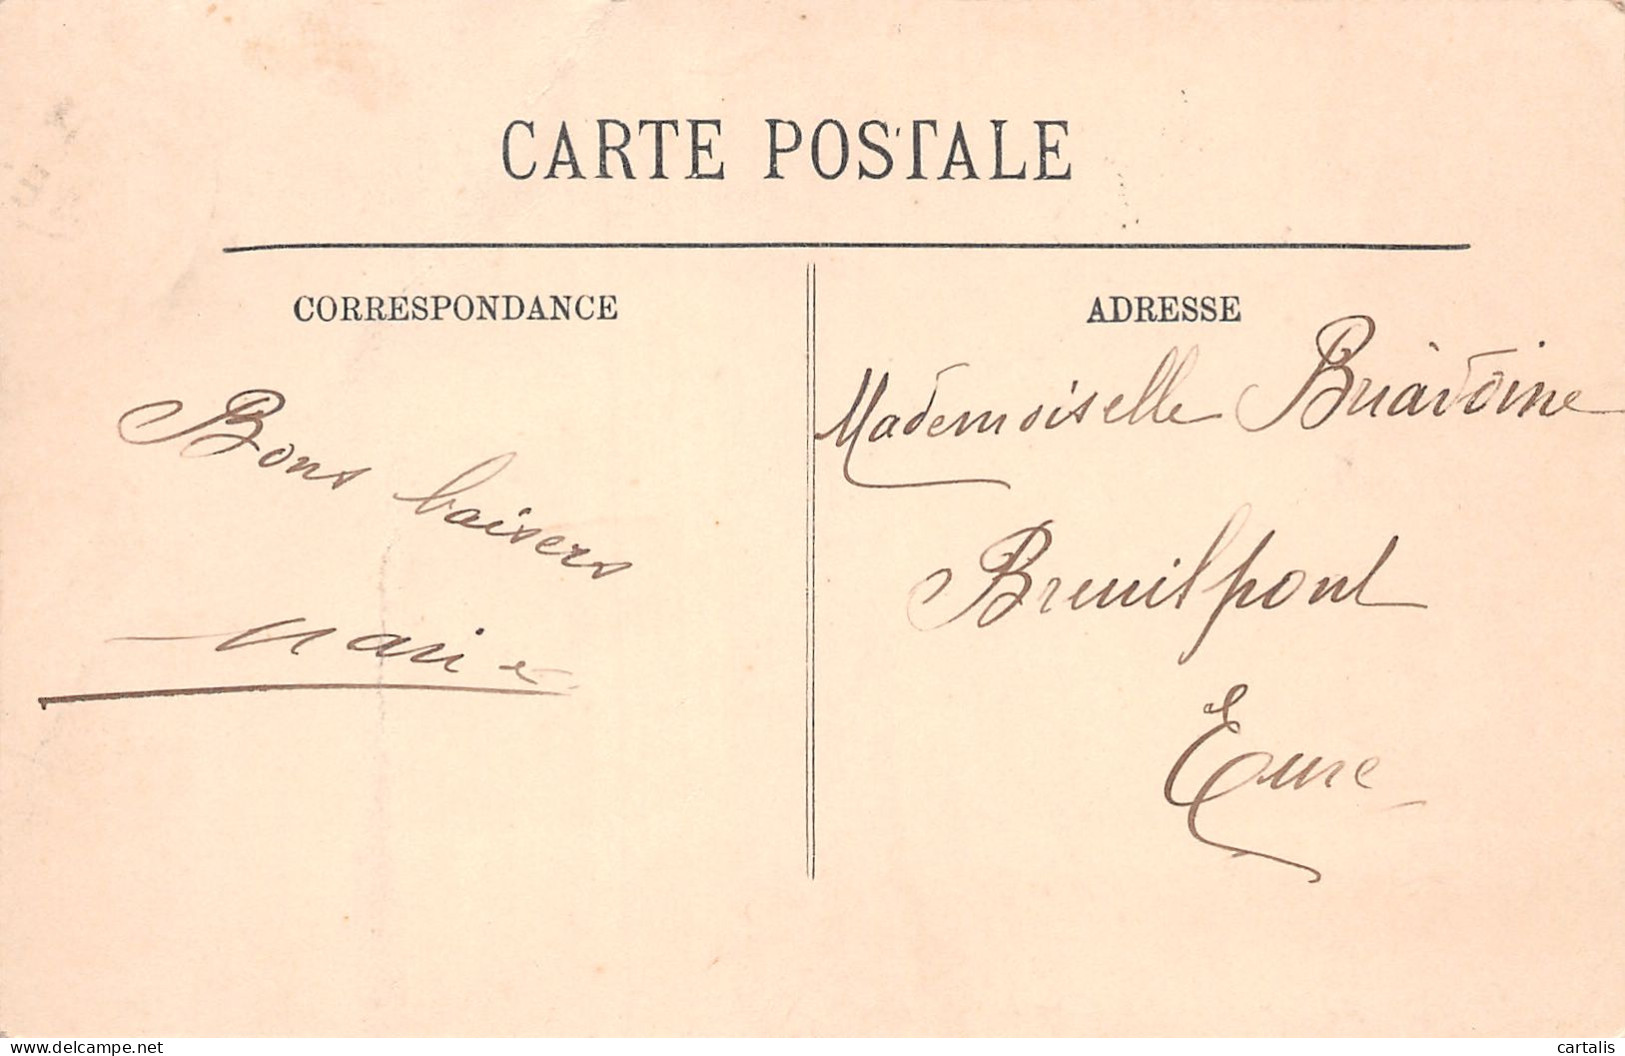 CARTE POSTALE
CORRESPONDANCE
Bons baisers
Marie
ADRESSE
Mademoiselle Briàdoine
Breuilpont
Eure
www.delcampe.net
cartalis